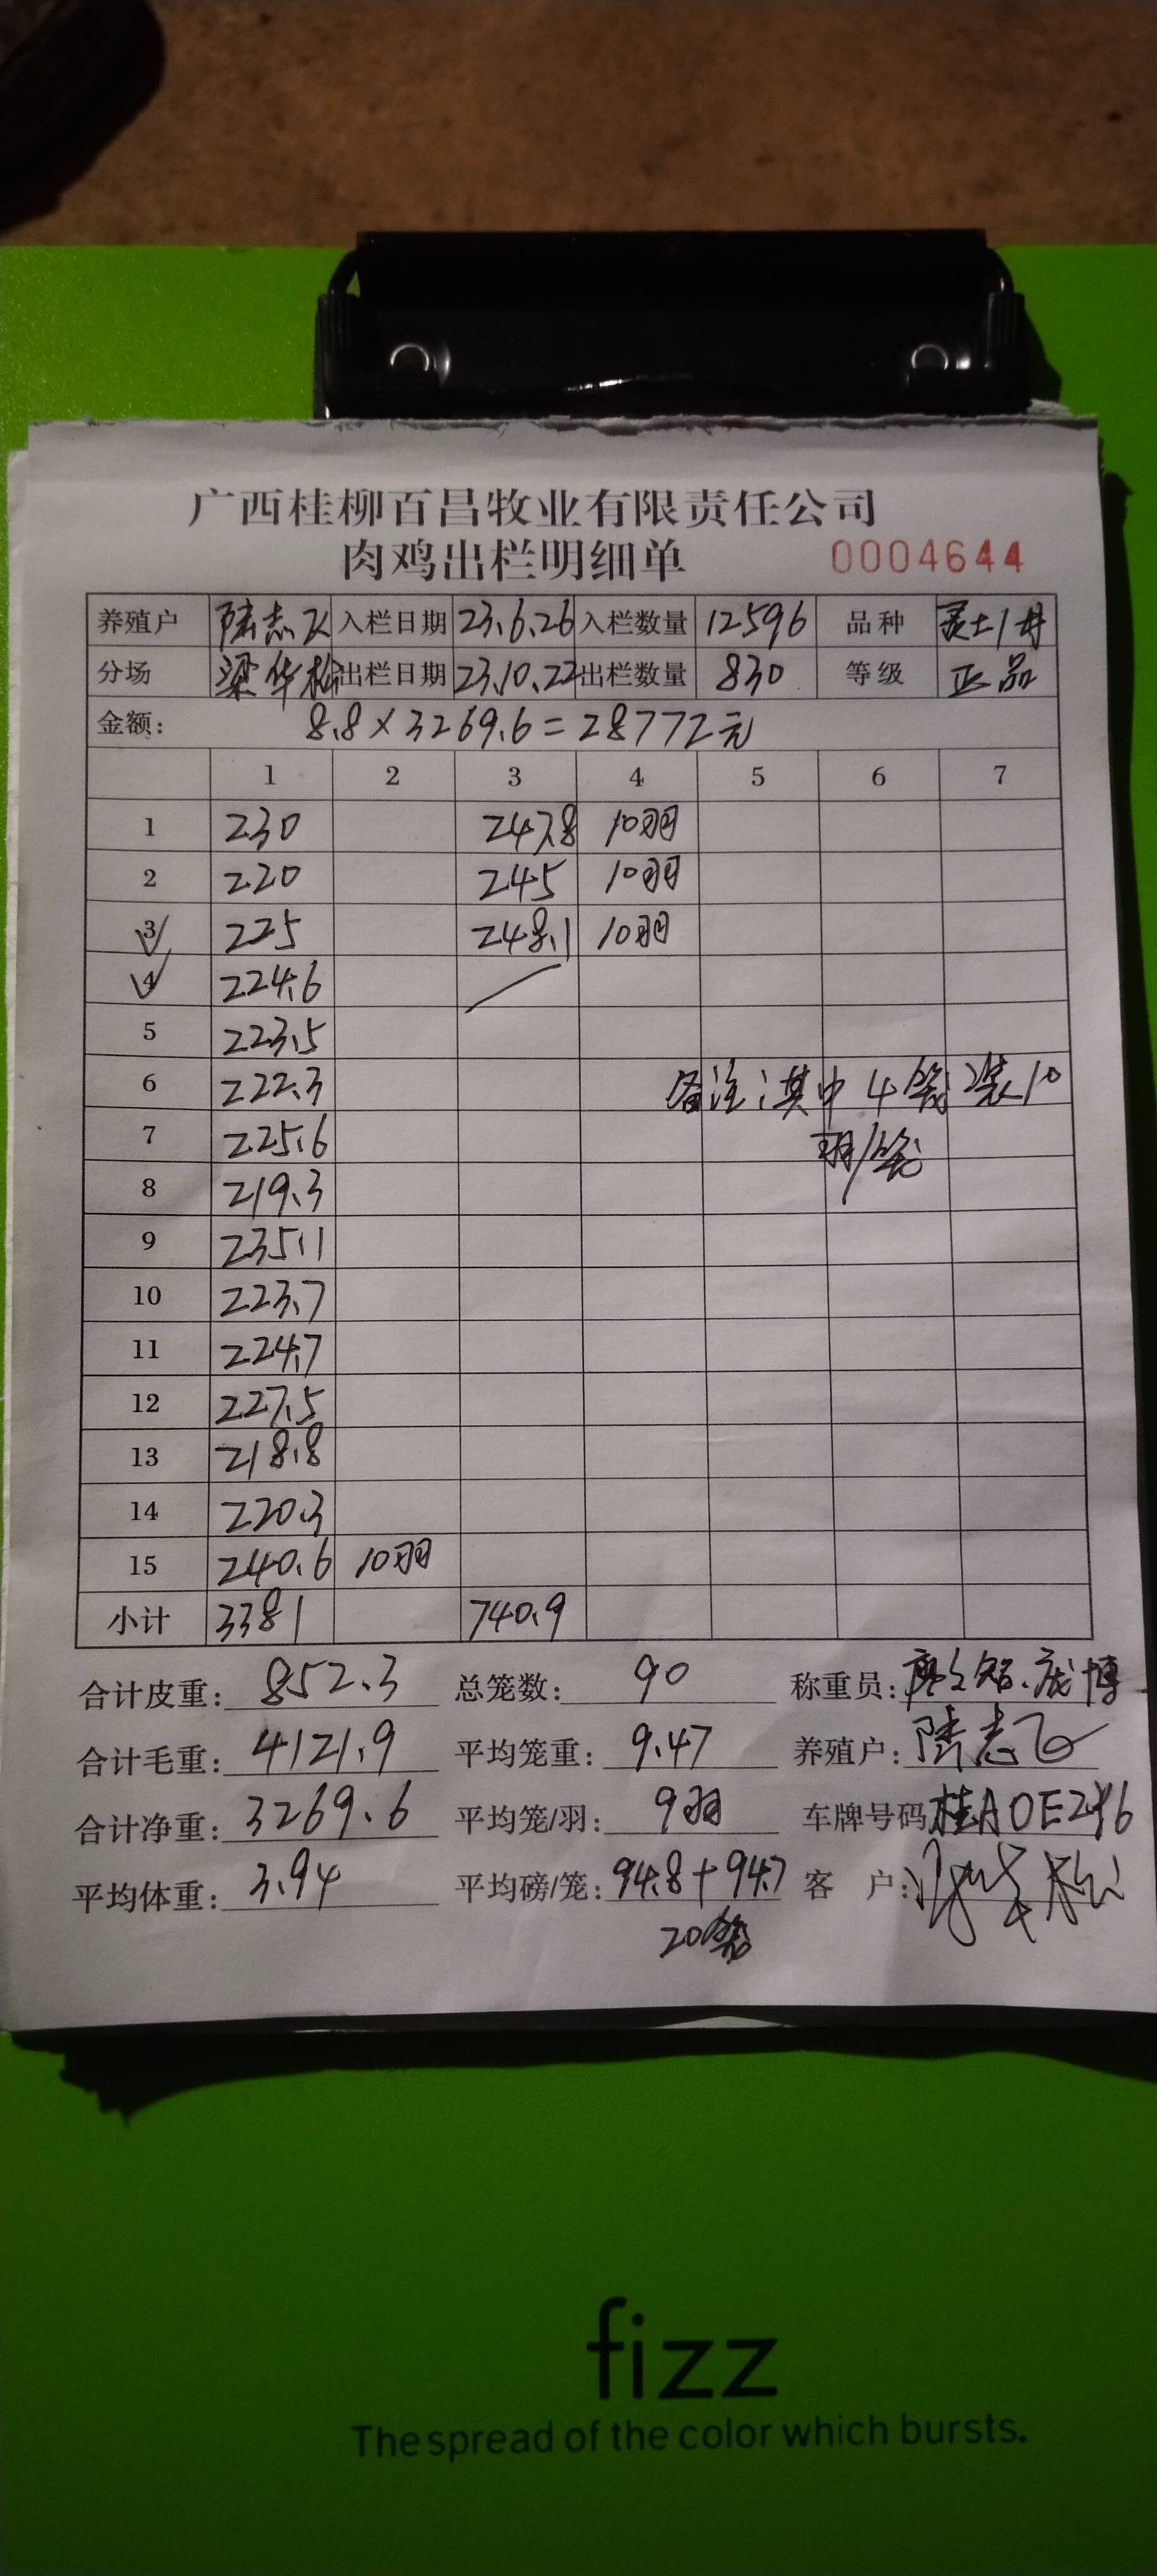 广西桂柳百昌牧业有限责任公司
肉鸡出栏明细单 0004644
养殖户 陆志飞 入栏日期 23.6.26 入栏数量 12596 品种 灵土1母
分场 梁华松 出栏日期 23.10.22 出栏数量 830 等级 正品
金额: 8.8×3269.6=28772元
1 2 3 4 5 6 7
1 230 247.8 10羽
2 220 245 10羽
3 225 248.1 10羽
4 224.6
5 223.5
6 222.3 备注:其中4笼装10
7 225.6 羽/笼
8 219.3
9 235.1
10 223.7
11 224.7
12 227.5
13 218.8
14 220.3
15 240.6 10羽
小计 3381 740.9
合计皮重: 852.3 总笼数: 90 称重员:
合计毛重: 4121.9 平均笼重: 9.47 养殖户: 陆志飞
合计净重: 3269.6 平均笼/羽: 9羽 车牌号码 桂A0E2
平均体重: 3.94 平均磅/笼: 94.8+94.7 客 户:
20笼
fizz
The spread of the color which bursts.